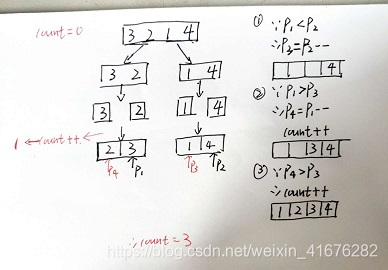 count=0
3 2 1 4
3 2
1 4
3
2
1
4
1 ← count++ ←
2 3
1 4
P4
P1
P3
P2
∴count=3
① ∵P1<P2
∴P3=P2--
1 4
② ∵P1>P3
∴P4=P1--
count++
1 3 4
③ ∵P4>P3
∴count++
1 2 3 4
https://blog.csdn.net/weixin_41676282